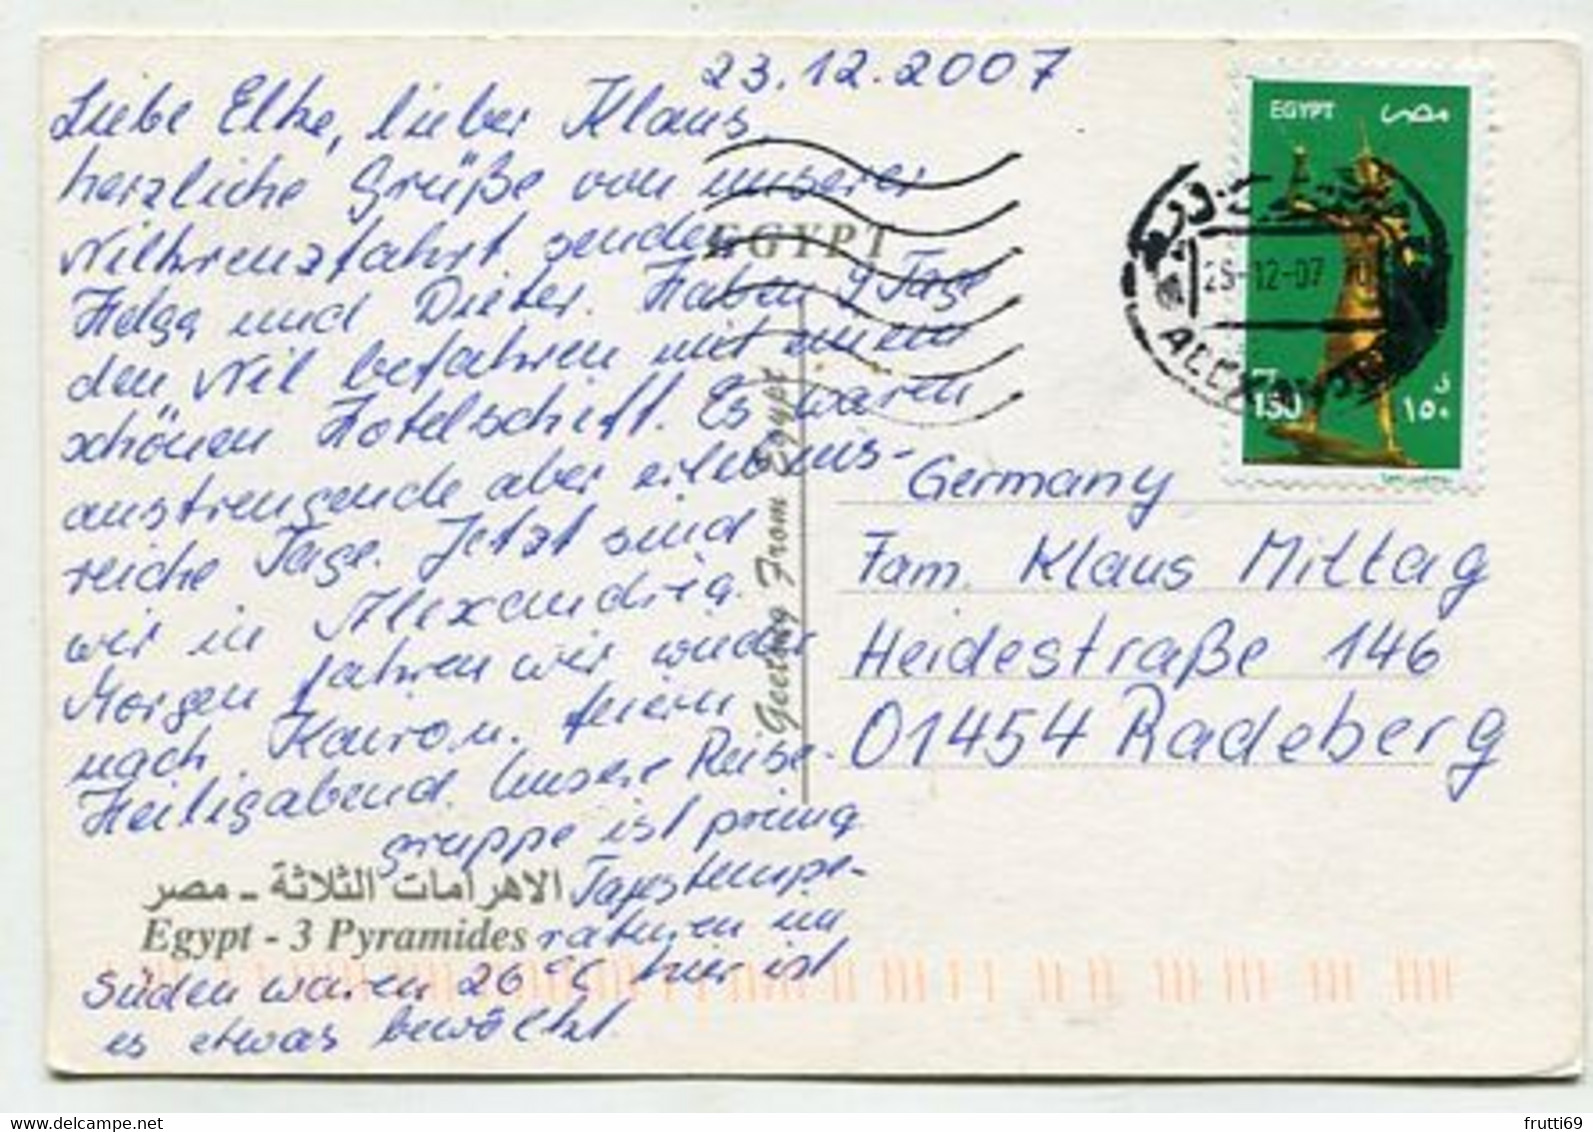 23.12.2007
Liebe Elke, lieber Klaus,
herzliche Grüße von unserer
Nilkreuzfahrt senden
Helga und Dieter. Haben 9 Tage
den Nil befahren mit einem
schönen Hotelschiff. Es waren
anstrengende aber erlebnis-
reiche Tage. Jetzt sind
wir in Alexandria.
Morgen fahren wir wieder
nach Kairo u. feiern
Heiligabend. Unsere Reise-
gruppe ist prima.
Tagestempe-
raturen im
Süden waren 26°C hier ist
es etwas bewölkt.
الاهرامات الثلاثة - مصر
Egypt - 3 Pyramides
EGYPT
Geeting From Egypt
EGYPT مصر
150 ١٥٠
-12-07
Germany
Fam. Klaus Mittag
Heidestraße 146
01454 Radeberg
www.delcampe.net
frutti69